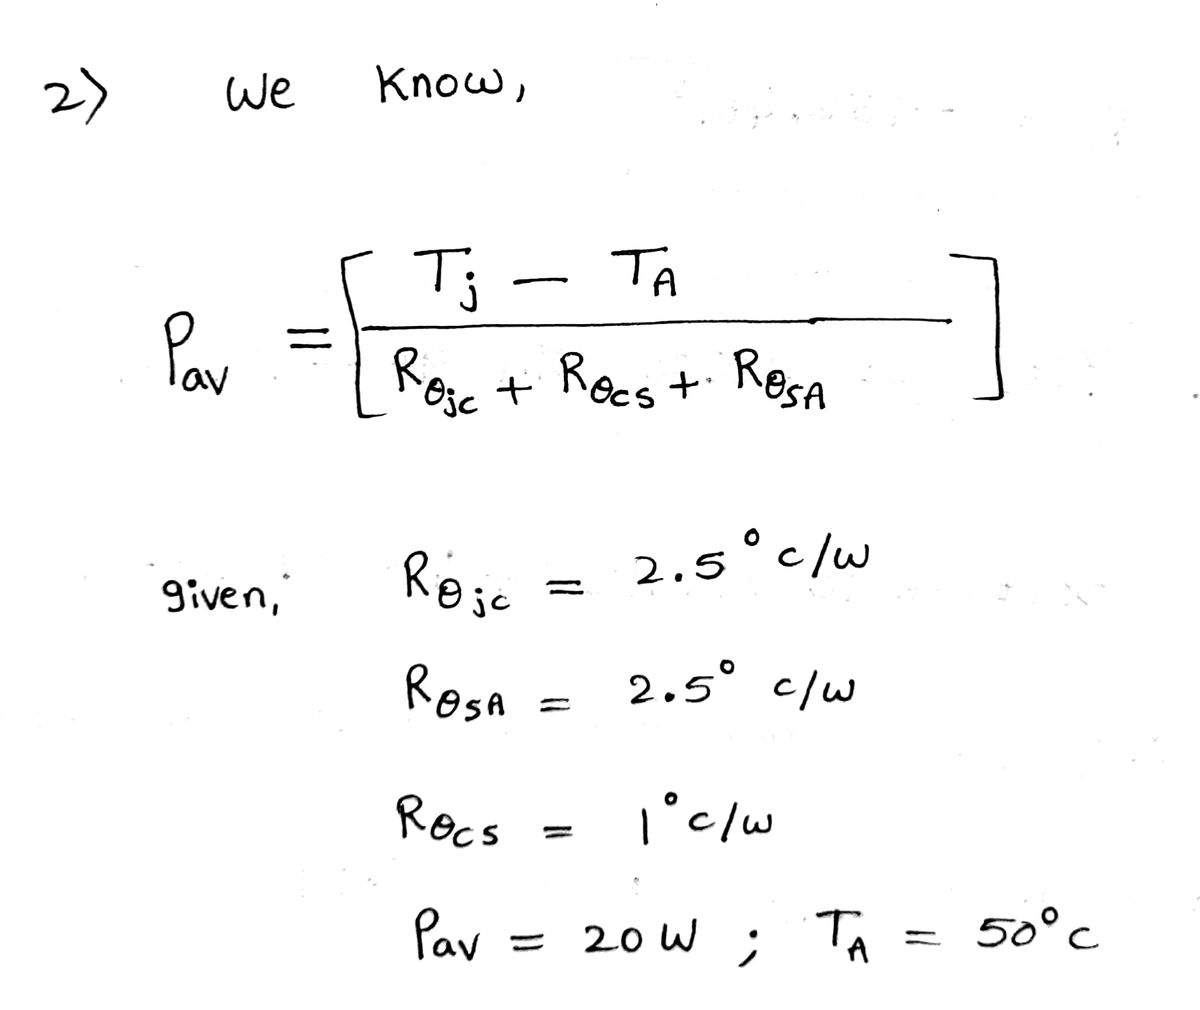 2) We Know,
Pav = [ Tj - TA
Rθjc + Rθcs + RθSA ]
given, Rθjc = 2.5°c/w
RθSA = 2.5° c/w
Rθcs = 1°c/w
Pav = 20 W ; TA = 50°c